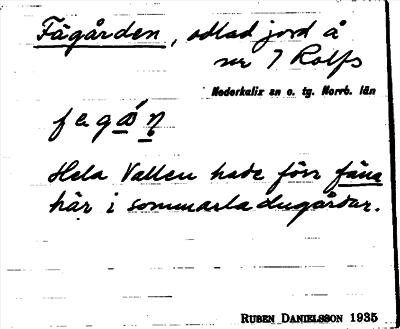 Fägården, odlad jord å
nr 7 Rolfs
Nederkalix sn o. tg. Norrb. län
Hela Vallen hade förr fäna
här i sommarladugårdar.
RUBEN DANIELSSON 1935